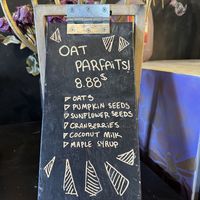 OAT
PARFAITS!
8.88$
OATS
PUMPKIN SEEDS
SUNFLOWER SEEDS
CRANBERRIES
COCONUT MILK
MAPLE SYRUP